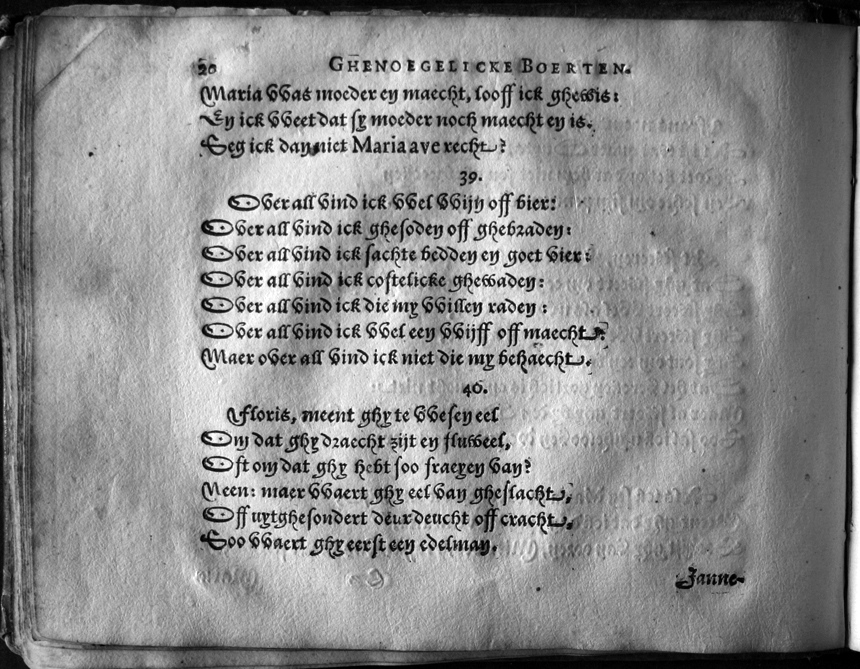 20 GHENOEGELICKE BOERTEN.
Maria was moeder en maecht, looff ick ghewis:
En ick weet dat sy moeder noch maecht en is.
Seg ick dan niet Maria ave recht?
39.
Over all vind ick wel wijn off bier:
Over all vind ick ghesoden off ghebraden:
Over all vind ick sachte bedden en goet vier:
Over all vind ick costelicke ghewaden:
Over all vind ick die my willen raden:
Over all vind ick wel een wijff off maecht:
Maer over all vind ick niet die my behaecht.
40.
Floris, meent ghy te wesen eel
Om dat ghy draecht zijt en fluweel,
Oft om dat ghy hebt soo fraeyen van?
Neen: maer waert ghy eel van gheslacht,
Off uytghesondert deur deucht off cracht,
Soo waert ghy eerst een edelman.
Janne-